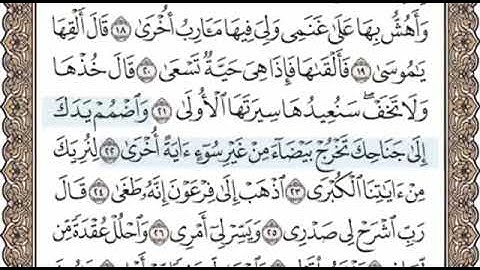 وَأَهُشُّ بِهَا عَلَىٰ غَنَمِي وَلِيَ فِيهَا مَـَٔارِبُ أُخْرَىٰ ١٨ قَالَ أَلْقِهَا
يَٰمُوسَىٰ ١٩ فَأَلْقَىٰهَا فَإِذَا هِيَ حَيَّةٌ تَسْعَىٰ ٢٠ قَالَ خُذْهَا
وَلَا تَخَفْ ۖ سَنُعِيدُهَا سِيرَتَهَا ٱلْأُولَىٰ ٢١ وَٱضْمُمْ يَدَكَ
إِلَىٰ جَنَاحِكَ تَخْرُجْ بَيْضَآءَ مِنْ غَيْرِ سُوٓءٍ ءَايَةً أُخْرَىٰ ٢٢ لِنُرِيَكَ
مِنْ ءَايَٰتِنَا ٱلْكُبْرَى ٢٣ ٱذْهَبْ إِلَىٰ فِرْعَوْنَ إِنَّهُۥ طَغَىٰ ٢٤ قَالَ
رَبِّ ٱشْرَحْ لِي صَدْرِي ٢٥ وَيَسِّرْ لِيٓ أَمْرِي ٢٦ وَٱحْلُلْ عُقْدَةً مِّن